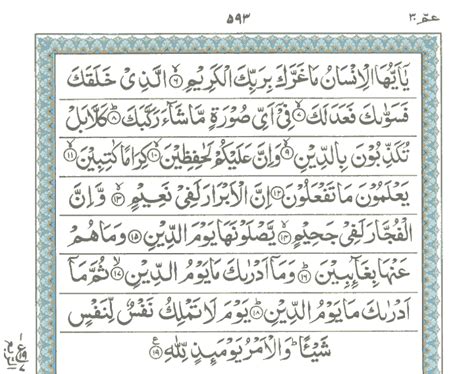 عمّ ٣٠ ٥٩٣
يٰۤاَيُّهَا الْاِنْسَانُ مَا غَرَّكَ بِرَبِّكَ الْكَرِيْمِ ۙ‏﴿۶﴾ الَّذِىْ خَلَقَكَ
فَسَوّٰٮكَ فَعَدَلَكَ ۙ‏﴿۷﴾ فِىْۤ اَىِّ صُوْرَةٍ مَّا شَآءَ رَكَّبَكَ ؕ‏﴿۸﴾ كَلَّا بَلْ
تُكَذِّبُوْنَ بِالدِّيْنِ ۙ‏﴿۹﴾ وَاِنَّ عَلَيْكُمْ لَحٰفِظِيْنَ ۙ‏﴿۱۰﴾ كِرَامًا كٰتِبِيْنَ ۙ‏﴿۱۱﴾
يَعْلَمُوْنَ مَا تَفْعَلُوْنَ‏﴿۱۲﴾ اِنَّ الْاَبْرَارَ لَفِىْ نَعِيْمٍ ۚ‏﴿۱۳﴾ وَاِنَّ
الْفُجَّارَ لَفِىْ جَحِيْمٍ ۚ‏﴿۱۴﴾ يَّصْلَوْنَهَا يَوْمَ الدِّيْنِ‏﴿۱۵﴾ وَمَا هُمْ
عَنْهَا بِغَآٮِٕبِيْنَ ؕ‏﴿۱۶﴾ وَمَاۤ اَدْرٰٮكَ مَا يَوْمُ الدِّيْنِ ۙ‏﴿۱۷﴾ ثُمَّ مَاۤ
اَدْرٰٮكَ مَا يَوْمُ الدِّيْنِ ؕ‏﴿۱۸﴾ يَوْمَ لَا تَمْلِكُ نَفْسٌ لِّنَفْسٍ
شَيْـًٔا ؕ وَالْاَمْرُ يَوْمَٮِٕذٍ لِّلّٰهِ‏﴿۱۹﴾